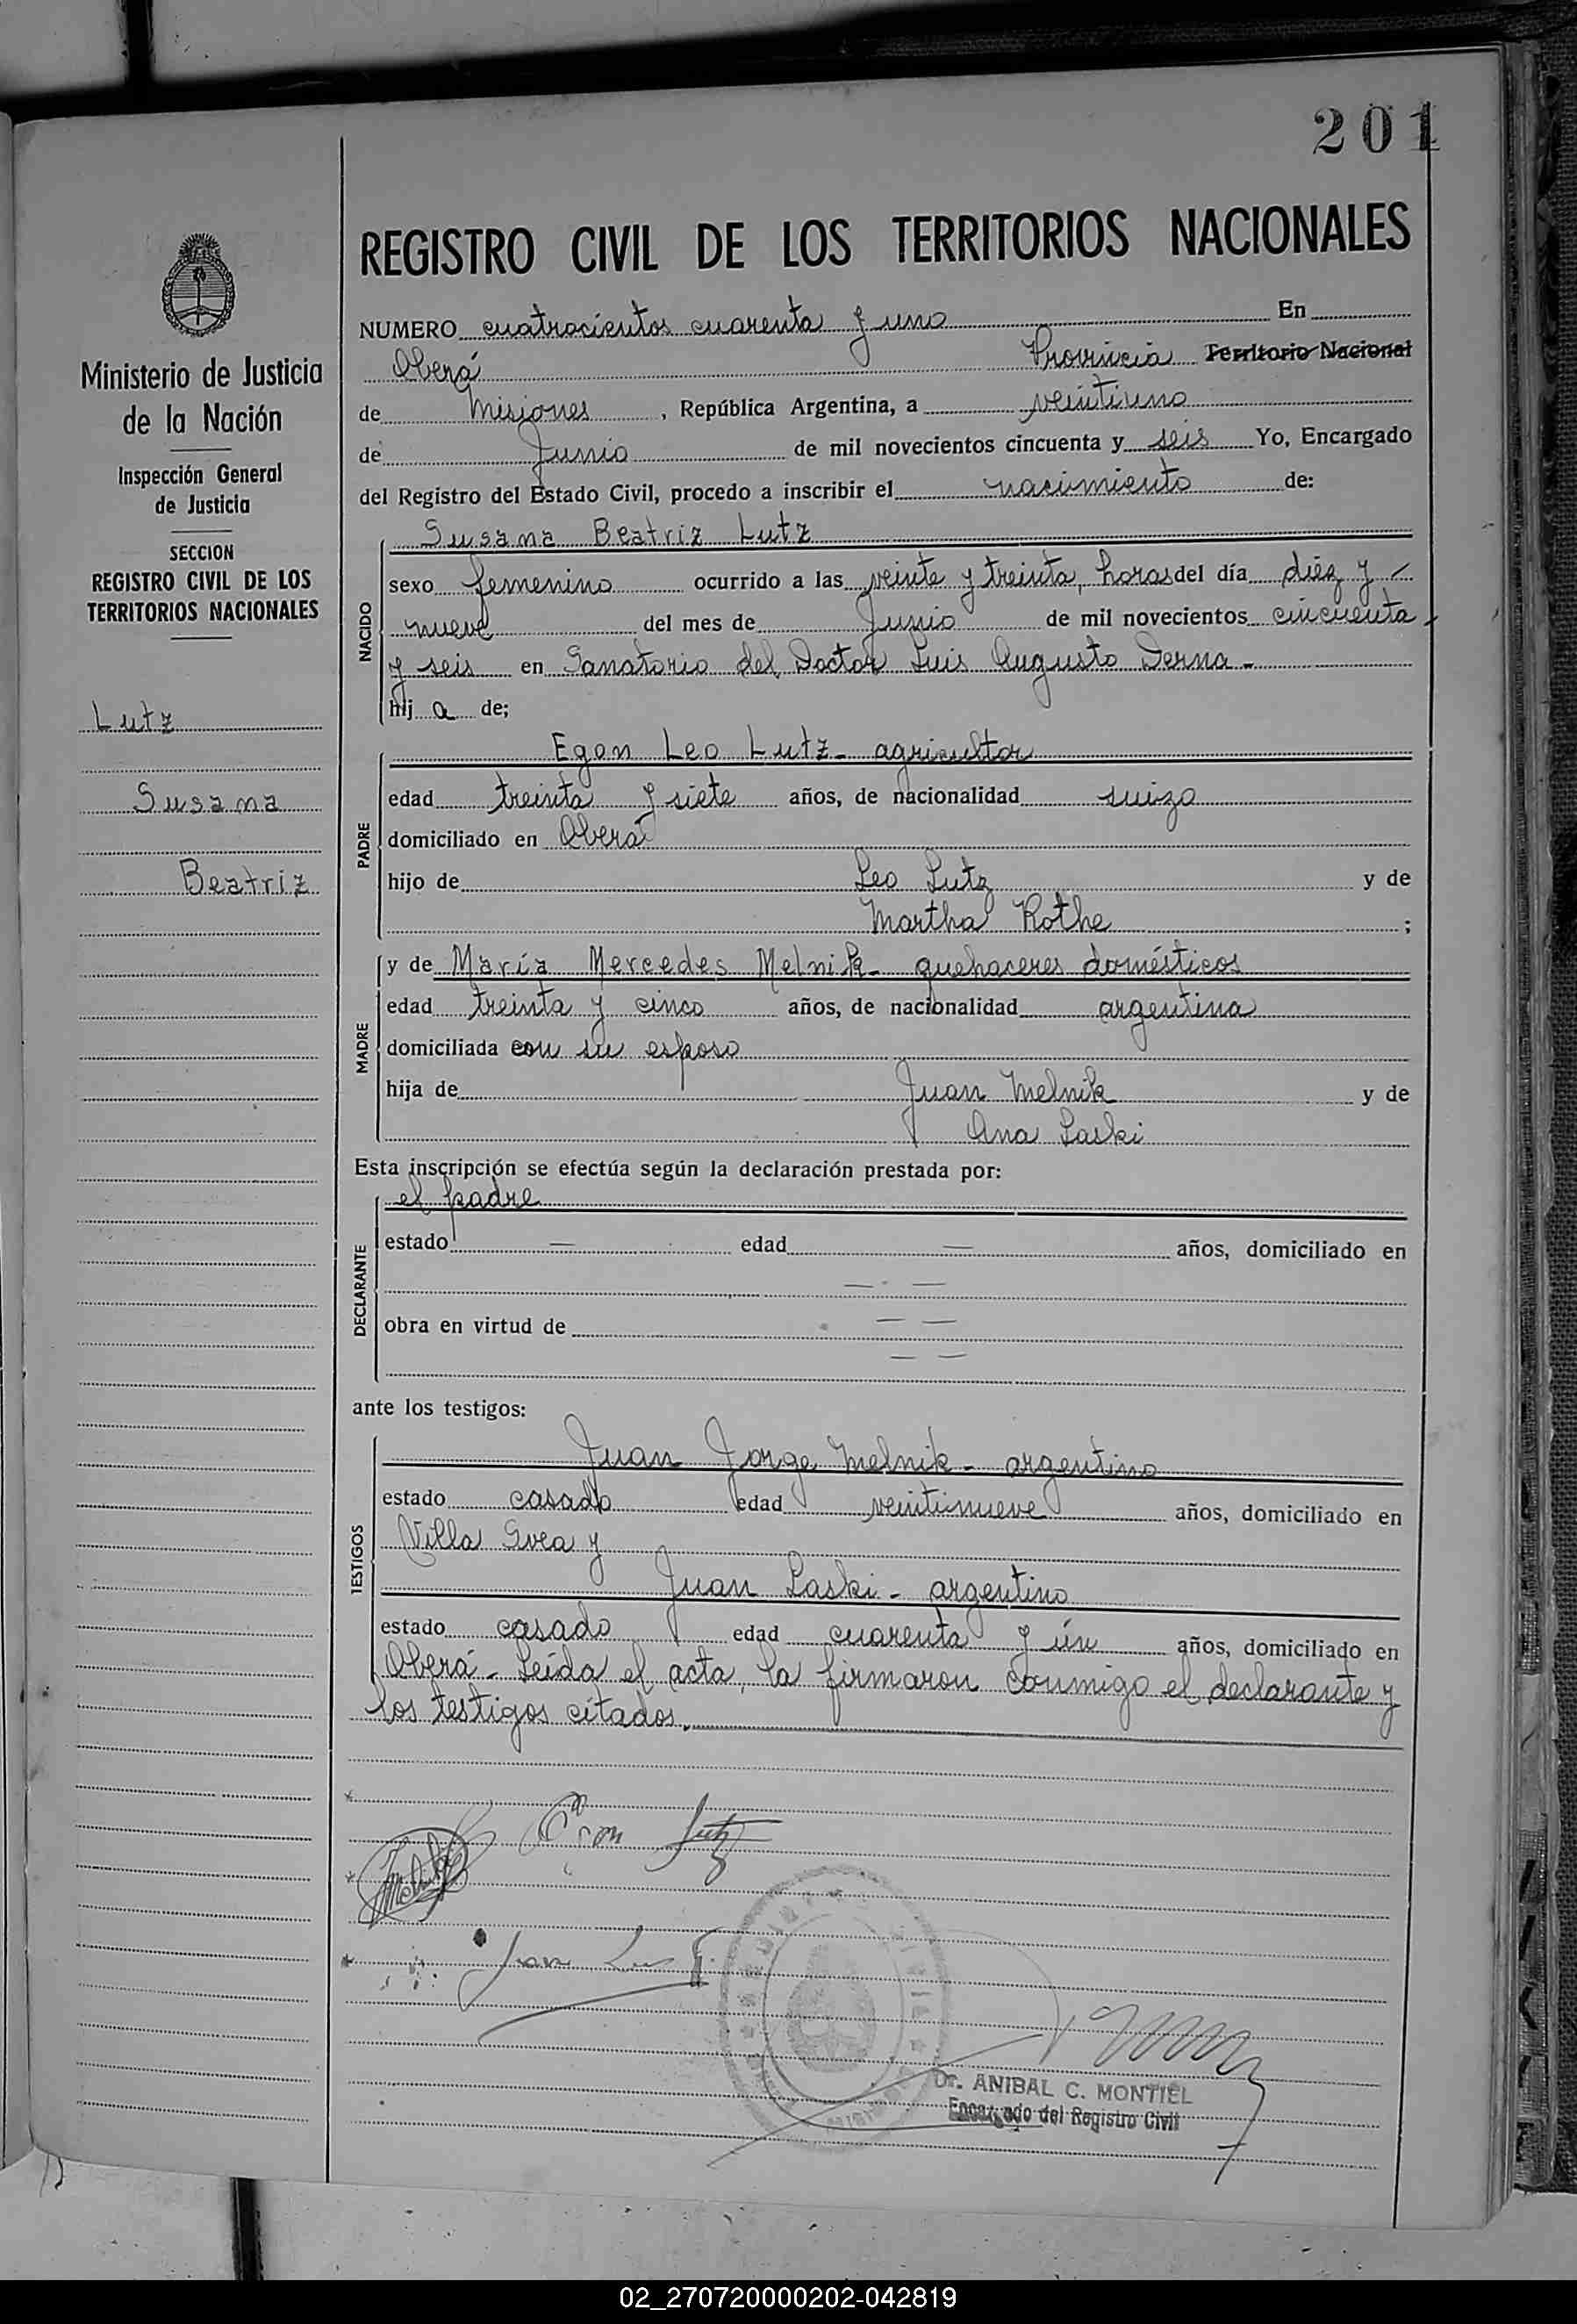 201
REGISTRO CIVIL DE LOS TERRITORIOS NACIONALES
Ministerio de Justicia
de la Nación
Inspección General
de Justicia
SECCION
REGISTRO CIVIL DE LOS
TERRITORIOS NACIONALES
Lutz
Susana
Beatriz
NUMERO cuatrocientos cuarenta y uno En
Oberá Provincia Territorio Nacional
de Misiones, República Argentina, a veintiuno
de Junio de mil novecientos cincuenta y seis Yo, Encargado
del Registro del Estado Civil, procedo a inscribir el nacimiento de:
NACIDO
Susana Beatriz Lutz
sexo femenino ocurrido a las veinte y treinta, horas del día diez y -
nueve del mes de Junio de mil novecientos cincuenta
y seis en Sanatorio del Doctor Luis Augusto Derna -
hij a de;
PADRE
Egon Leo Lutz - agricultor
edad treinta y siete años, de nacionalidad suizo
domiciliado en Oberá
hijo de Leo Lutz y de
Martha Rothe ;
MADRE
y de María Mercedes Melnik - quehaceres domésticos
edad treinta y cinco años, de nacionalidad argentina
domiciliada con su esposo
hija de Juan Melnik y de
Ana Laski
Esta inscripción se efectúa según la declaración prestada por:
DECLARANTE
el padre
estado — edad — años, domiciliado en
— —
obra en virtud de — —
— —
ante los testigos:
TESTIGOS
Juan Jorge Melnik - argentino
estado casado edad veintinueve años, domiciliado en
Villa Svea y
Juan Laski - argentino
estado casado edad cuarenta y ún años, domiciliado en
Oberá - Leída el acta, la firmaron conmigo el declarante y
los testigos citados.
Lutz
Melnik
Dr. ANIBAL C. MONTIEL
Encargado del Registro Civil
02_270720000202-042819